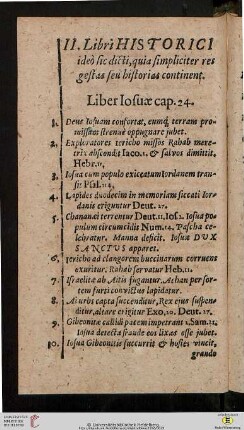 II. Libri HISTORICI
ideò sic dicti, quia simpliciter res
gestas seu historias continent.
Liber Iosuæ cap. 24.
1. Deus Iosuam confortat, eumq; terram pro-
missam strenuè oppugnare jubet.
2. Exploratores iericho missos Rahab mere-
trix abscondit Iaco. 2. & salvos dimittit,
Hebr. 11.
3. Iosua cum populo exiccatum Iordanem trans-
iit Psal. 114.
4. Lapides duodecim in memoriam siccati Ior-
danis eriguntur Deut. 27.
5. Chananæi terrentur Deut. 11. Ios 2. Iosua po-
pulum circumcidit Num. 14. Pascha ce-
lebratur. Manna deficit. Iosuæ DUX
SANCTUS apparet.
6. Iericho ad clangorem buccinarum corruens
exuritur. Rahab servatur Heb. 11.
7. Israelitæ ab Aitis fugantur. Achan per sor-
tem furti convictus lapidatur.
8. Ai urbs capta succenditur, Rex ejus suspen-
ditur, altare erigitur Exo. 20. Deut. 27.
9. Gibeonitæ callidi pacem impetrant 2. Sam. 21.
Iosua detecta fraude eos lixas esse jubet.
10. Iosua Gibeonitis succurrit & hostes vincit,
grando